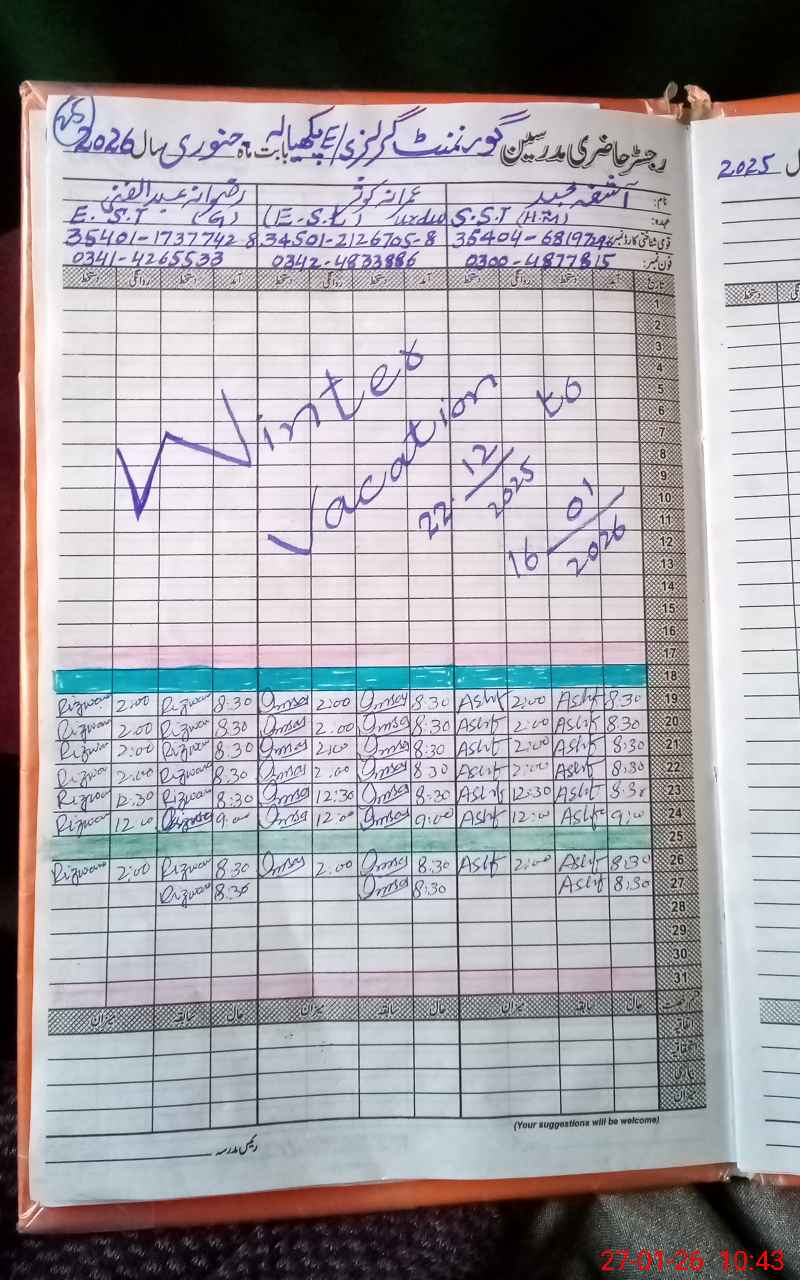 25
رجسٹر حاضری مدرسین گورنمنٹ گرلز E/S پکھیالہ بابت ماہ جنوری سال 2026
نام: آشفہ مجید عمرانہ کوثر رضوانہ عبدالغنی
عہدہ: S.S.T (H.M) (E.S.E) Urdu E.S.T (G)
قومی شناختی کارڈ نمبر 34501-2126705-8 35401-1737742-8
فون نمبر: 0300-4877815 0342-4833886 0341-4265533
تاریخ آمد دستخط روانگی دستخط آمد دستخط روانگی دستخط آمد دستخط روانگی دستخط
1
2
3
4
5
6
7
8
9
10
11
12
13
14
15
16
17
18
Winter
Vacation
22 12/2025 to
16 01/2026
Rizwan 2:00 Rizwan 8:30 2:00 8:30 Ashf 2:00 Ashf 8:30 19
Rizwan 2:00 Rizwan 8:30 2:00 8:30 Ashf 2:00 Ashf 8:30 20
Rizwan 2:00 Rizwan 8:30 2:00 8:30 Ashf 2:00 Ashf 8:30 21
Rizwan 2:00 Rizwan 8:30 2:00 8:30 Ashf 2:00 Ashf 8:30 22
Rizwan 12:30 Rizwan 8:30 12:30 8:30 Ashf 12:30 Ashf 8:30 23
Rizwan 12:00 9:00 12:00 9:00 Ashf 12:00 Ashf 9:00 24
25
Rizwan 2:00 Rizwan 8:30 2:00 8:30 Ashf 2:00 Ashf 8:30 26
Rizwan 8:30 8:30 Ashf 8:30 27
28
29
30
31
حال سابقہ میزان حال سابقہ میزان حال سابقہ میزان
اتفاقیہ
میزان
(Your suggestions will be welcome)
رئیس مدرسہ
سال 2025
دستخط
27-01-26 10:43